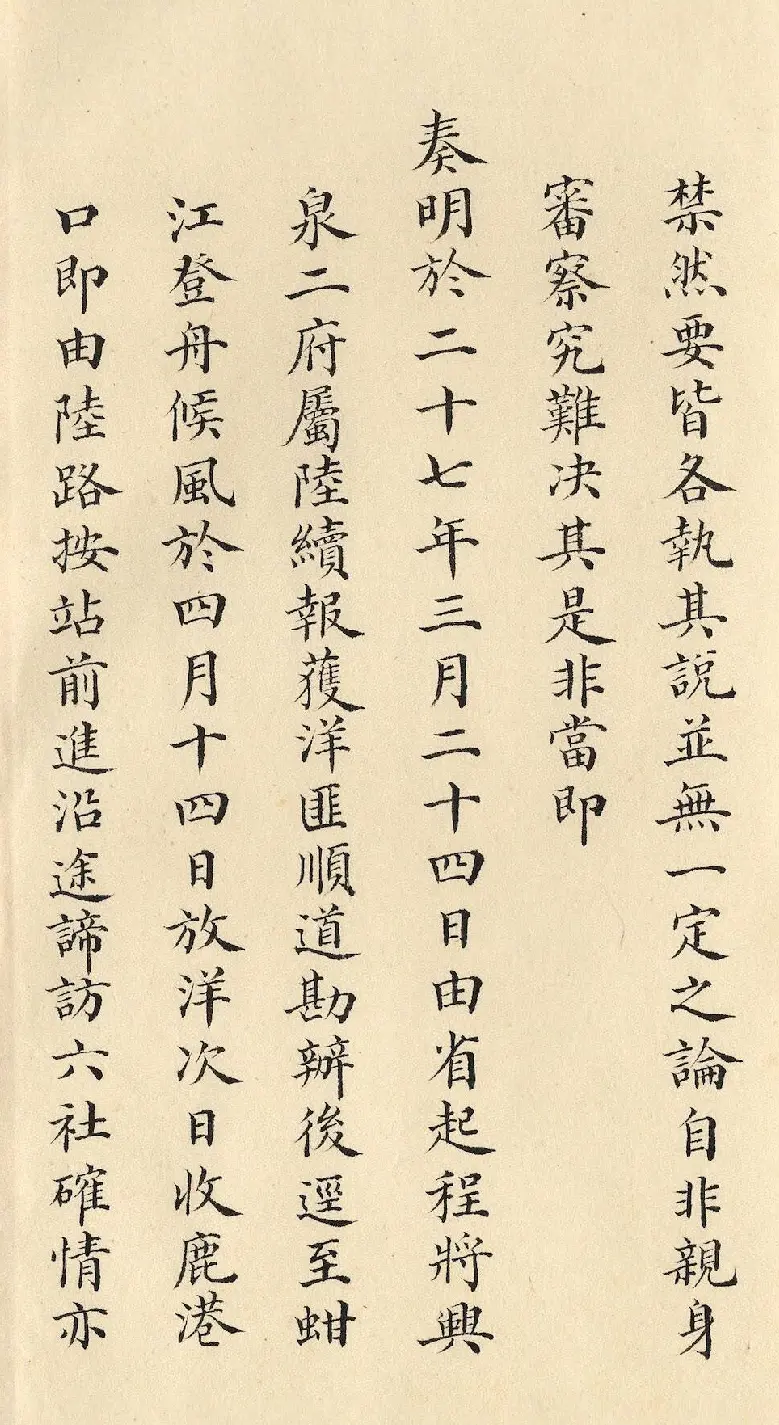 禁然要皆各執其說並無一定之論自非親身
審察究難决其是非當即
奏明於二十七年三月二十四日由省起程將興
泉二府屬陸續報獲洋匪順道勘辦後逕至蚶
江登舟候風於四月十四日放洋次日收鹿港
口即由陸路按站前進沿途諦訪六社確情亦